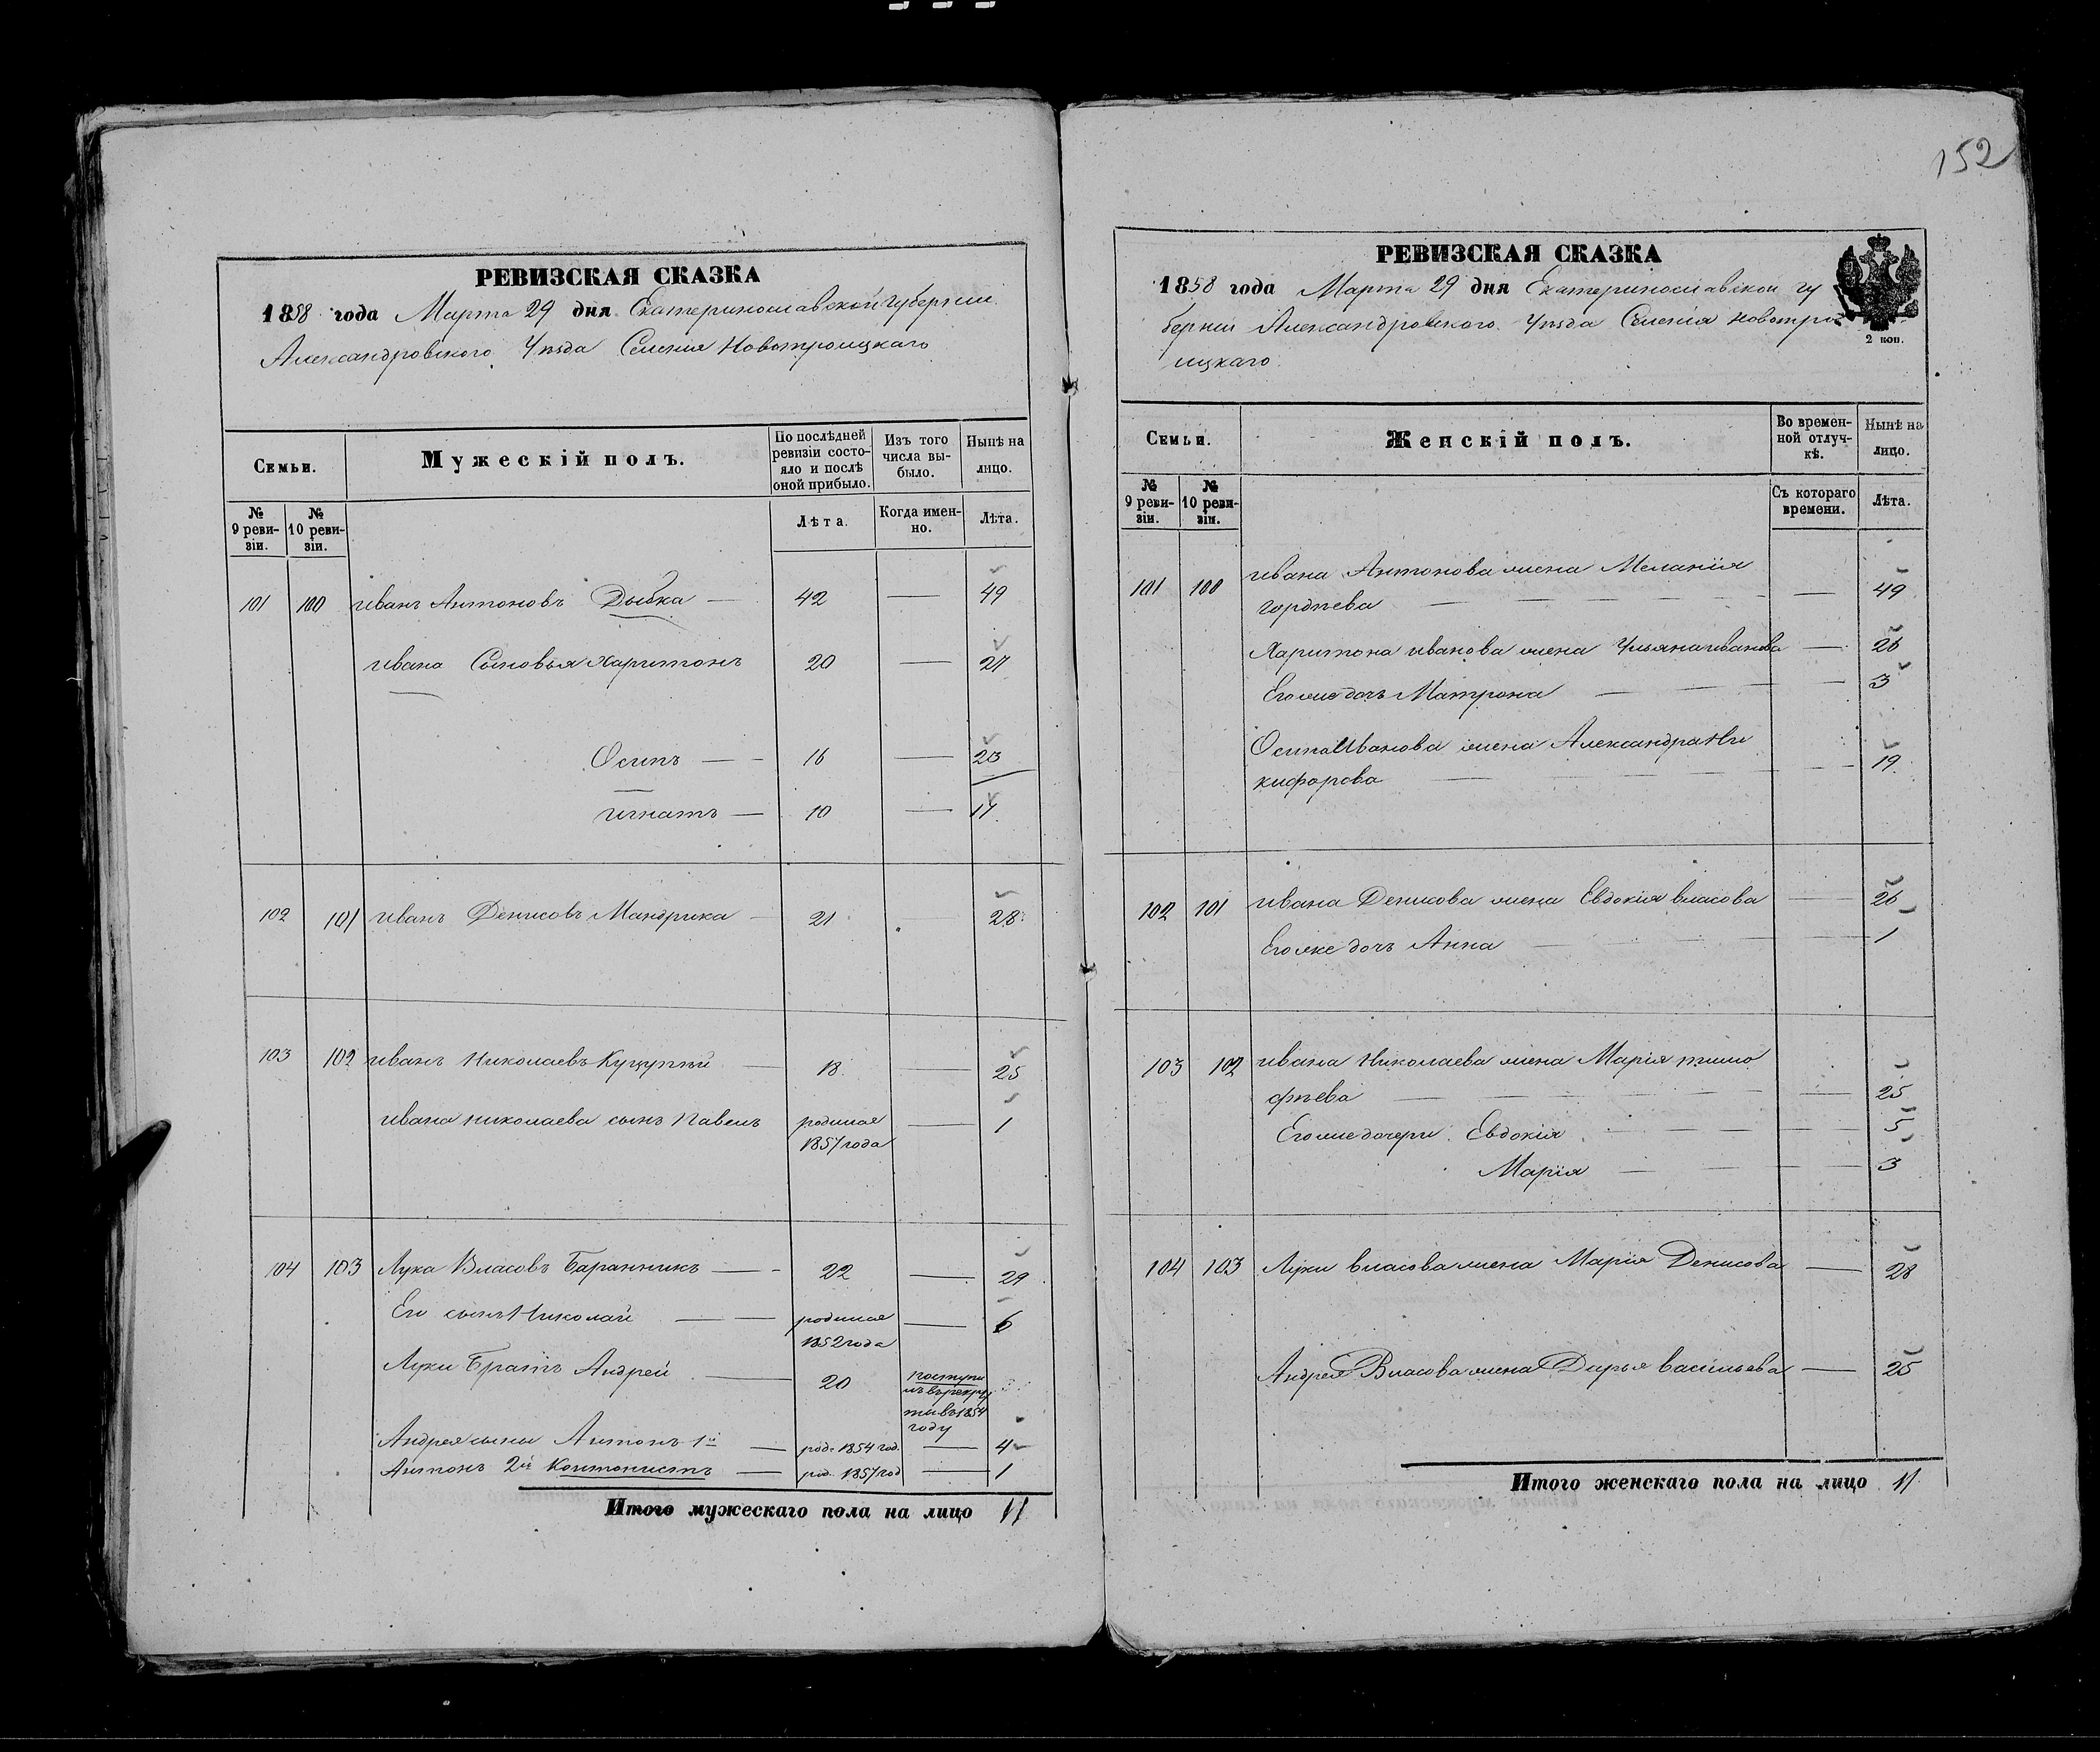 152
РЕВИЗСКАЯ СКАЗКА
1858 года Марта 29 дня Екатеринославской губернии
Александровского Уѣзда Селения Новотроицкаго
Семьи.
Мужескій полъ.
По послѣдней ревизіи состояло и послѣ оной прибыло.
Изъ того числа выбыло.
Нынѣ на лицо.
№ 9 ревизіи.
№ 10 ревизіи.
Лѣта.
Когда именно.
Лѣта.
101 100 иванъ Антоновъ Дыбка — 42 — 49
ивана Сыновья Харитонъ 20 — 27
Осипъ — - 16 — 23
игнатъ — 10 — 17
102 101 иванъ Денисовъ Мандрика - 21 28
103 102 иванъ Николаевъ — 18 — 25
ивана николаева сынъ Павелъ родился 1857 года — 1
104 103 Лука Власовъ Баранникъ — - 22 — 29
Его сынъ Николай — — родился 1852 года — 6
Луки Братъ Андрей — 20 поступилъ въ рекруты въ 1854 году
Андрея сыны Антонъ 1й — род. 1854 год. — 4
Антонъ 2й Контонистъ — род. 1857 год — 1
Итого мужескаго пола на лицо 11
РЕВИЗСКАЯ СКАЗКА
1858 года Марта 29 дня Екатеринославской гу
берніи Александровского Уѣзда Селения Новотро
ицкаго
2 коп.
Семьи.
Женскій полъ.
Во временной отлучкѣ.
Нынѣ на лицо.
№ 9 ревизіи.
№ 10 ревизіи.
Съ котораго времени.
Лѣта.
101 100 ивана Антонова жена Меланія
гордѣева — — — — 49
Харитона иванова жена Ульяна иванова — 26
Его же дочь Матрона — — — 3
Осипа Иванова жена Александра Ни
кифорова — — — 19
102 101 ивана Денисова жена Евдокія власова — 26
Его же дочь Анна — — — 1
103 102 ивана Николаева жена Марія тимо
фѣева — — — — 25
Его же дочери Евдокія — — — 5
Марія — — — 3
104 103 Луки власова жена Марія Денисова — 28
Андрея Власова жена Дарья васильева — 25
Итого женскаго пола на лицо 11